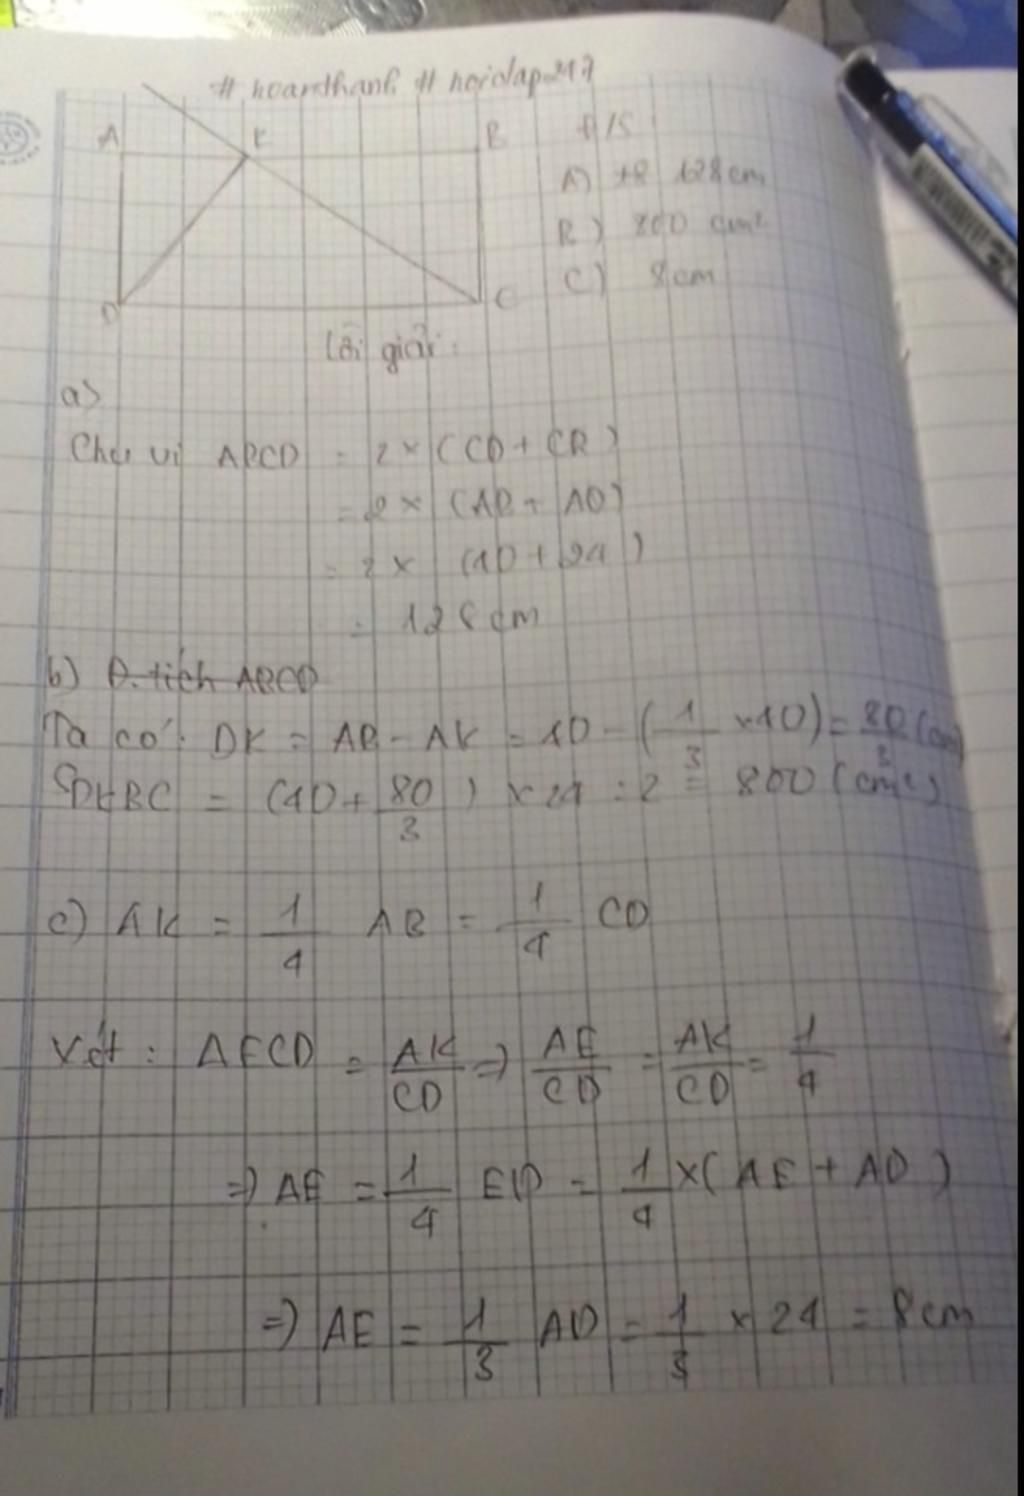 # hoanthanh # hoidap247
A K B Đ/S
A) 128 cm
B) 800 cm²
C) 8 cm
D C
Lời giải:
a)
Chu vi ABCD = 2 × (CD + CB)
= 2 × (AB + AD)
= 2 × (40 + 24)
= 128 cm
b) D.tích ABCD
Ta có: BK = AB - AK = 40 - (1/3 × 40) = 80/3 (cm)
SDKBC = (40 + 80/3) × 24 : 2 = 800 (cm²)
c) AK = 1/4 AB = 1/4 CD
Xét: AECD = AK/CD => AE/CD = AK/CD = 1/4
=> AE = 1/4 ED = 1/4 × (AE + AD)
=> AE = 1/3 AD = 1/3 × 24 = 8 cm